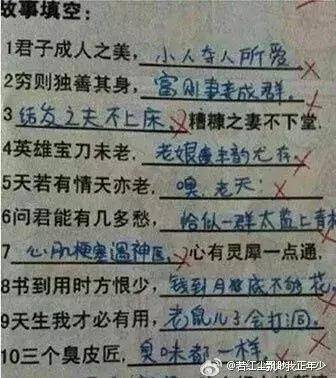 故事填空：
1君子成人之美，小人夺人所爱
2穷则独善其身，富则妻妾成群。
3结发之夫不上床，糟糠之妻不下堂.
4英雄宝刀未老，老娘丰韵尤存
5天若有情天亦老，噢.老天.
6问君能有几多愁，恰似一群太监上青
7心肌梗塞遇神医，心有灵犀一点通，
8书到用时方恨少，钱到月底不够花，
9天生我才必有用，老鼠儿子会打洞.
10三个臭皮匠，臭味都一样
@若红尘